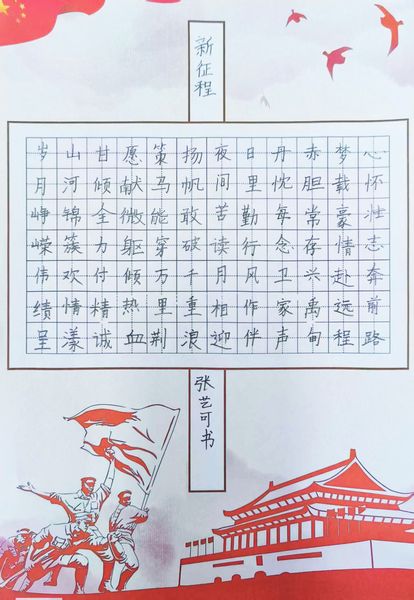 新征程
心怀壮志奔前路
梦载豪情赴远程
赤胆常存兴禹甸
丹忱每念卫家声
日里勤行风作伴
夜间苦读月相迎
扬帆敢破千重浪
策马能穿万里荆
愿献微躯倾热血
甘倾全力付精诚
山河锦簇欢情漾
岁月峥嵘伟绩呈
张艺可书